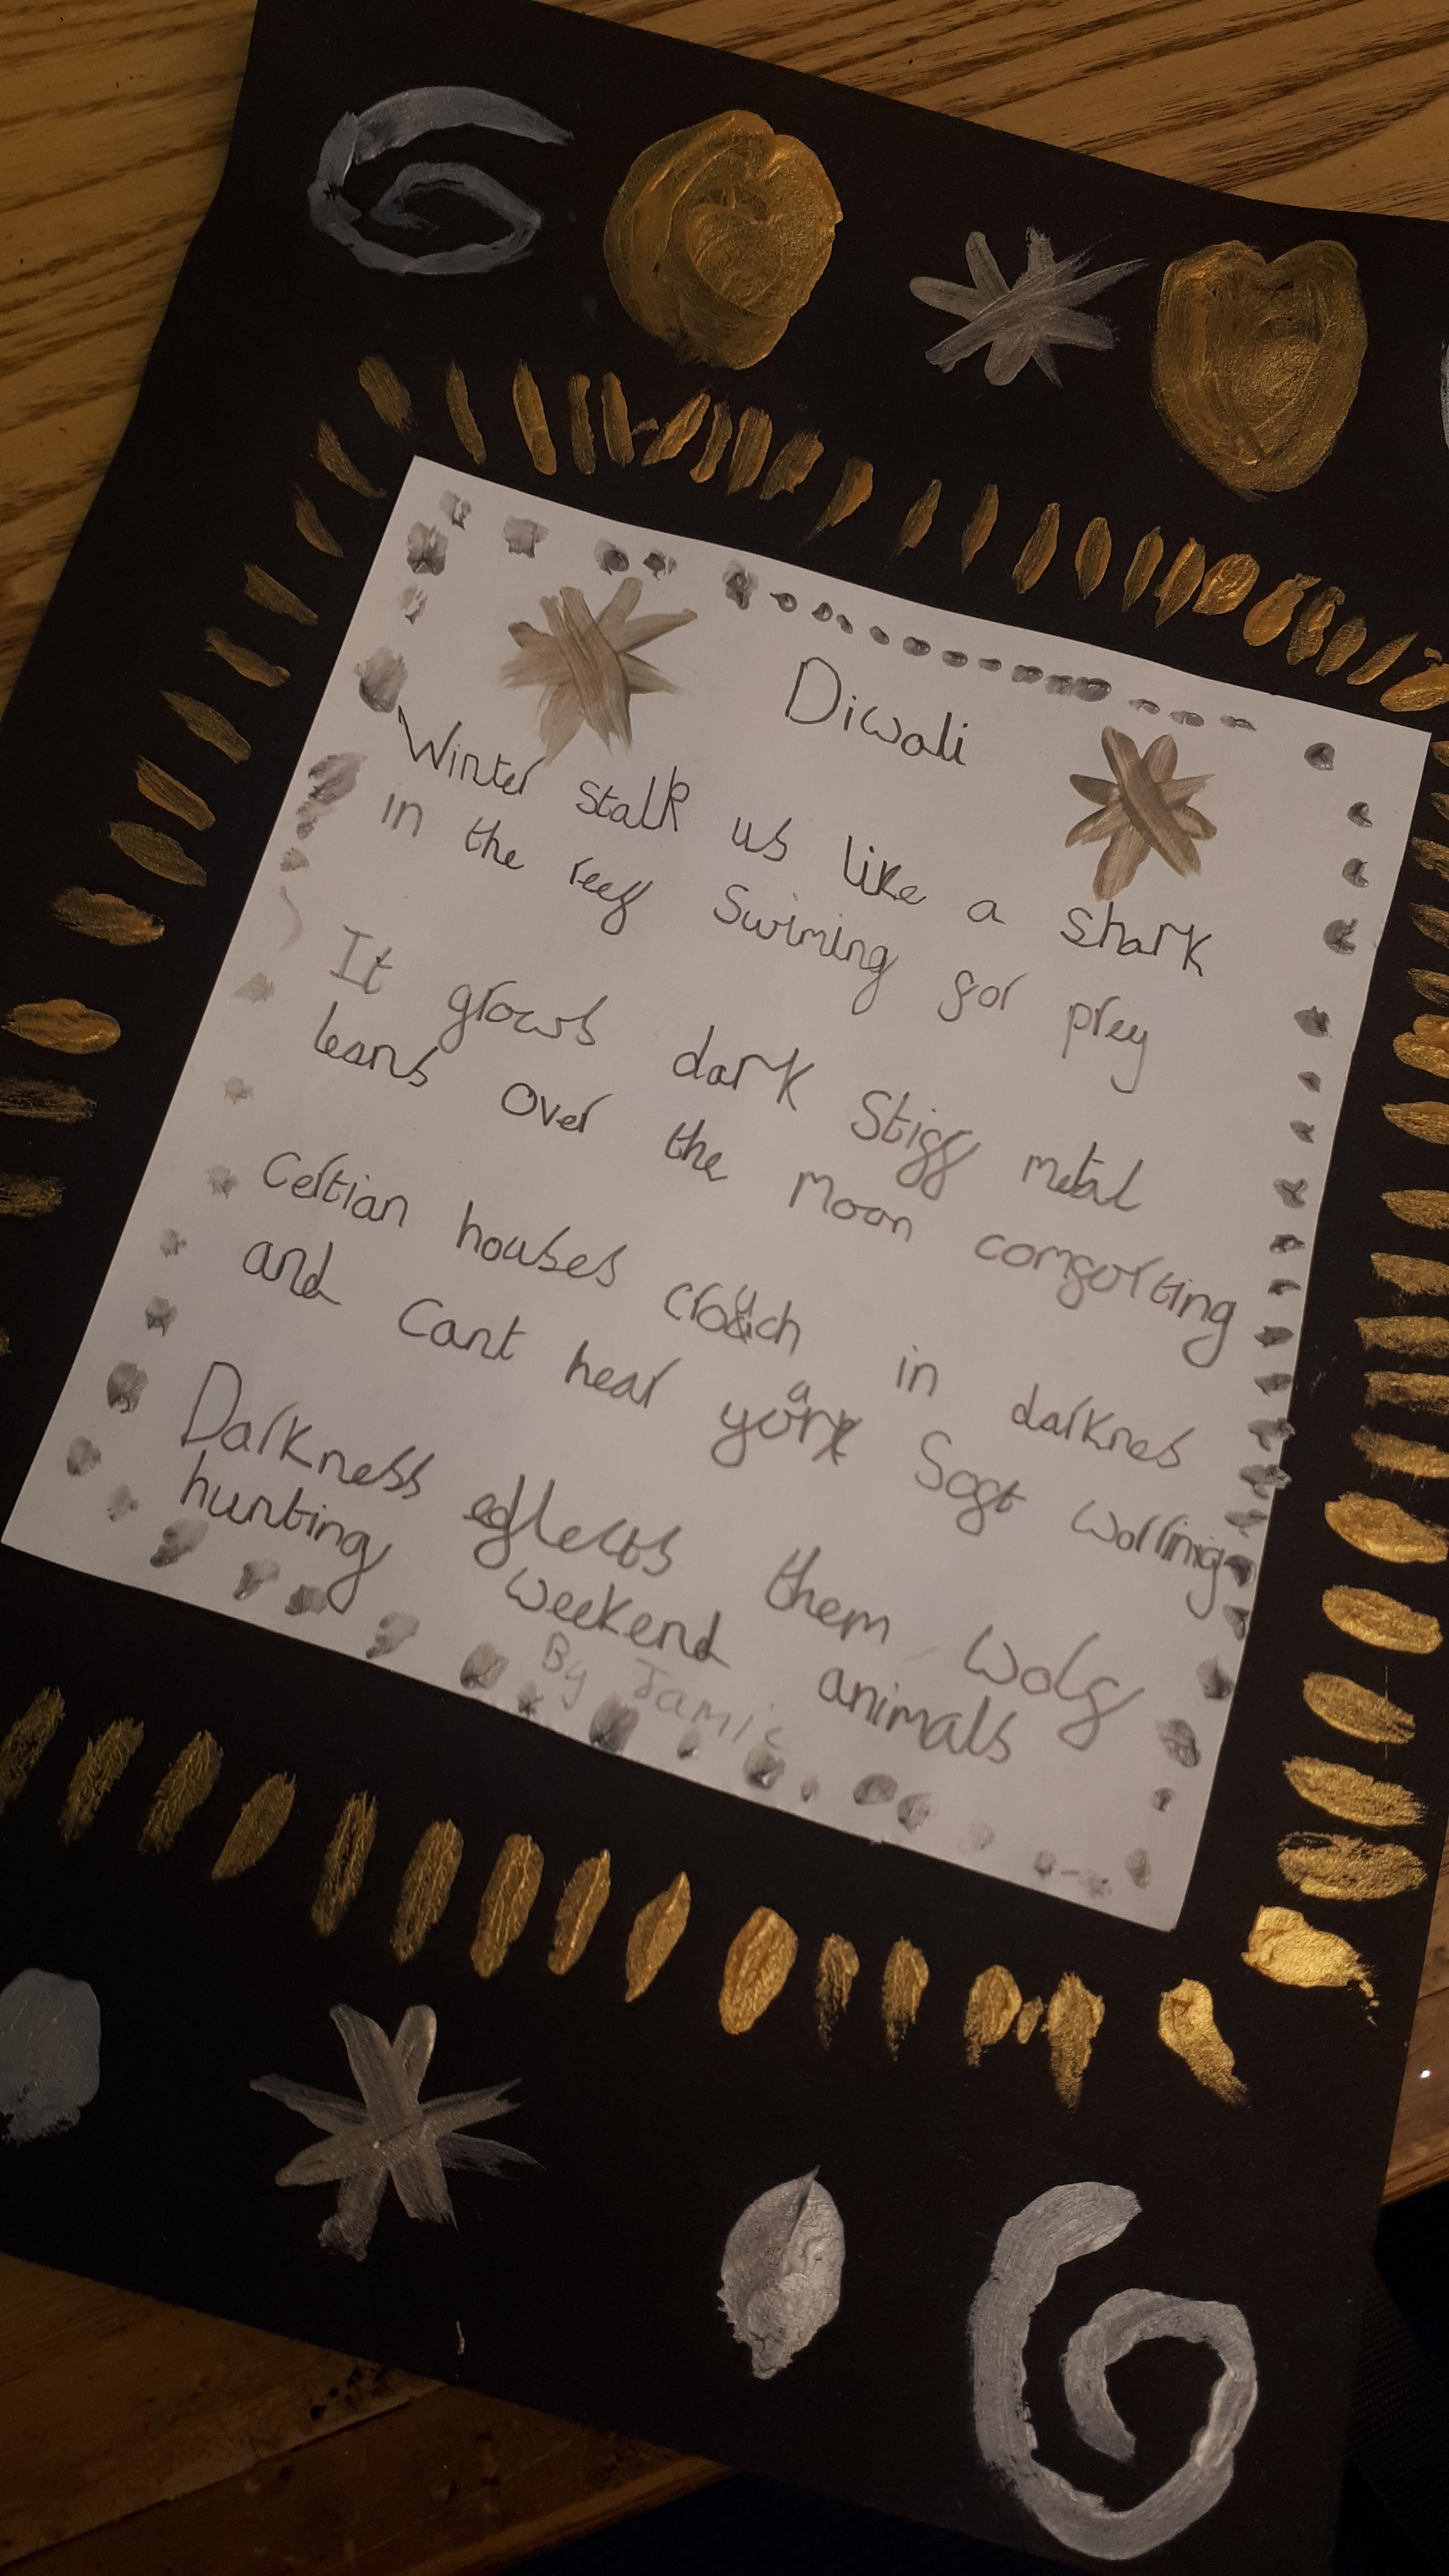 Diwali
Winter stalk us like a shark
in the reef Swiming for prey
It grows dark Stiff metal
leans over the moon comforting
Certian houses crouch in darknes
and Cant hear Soft
Darkness effects them wolf
hunting weekend animals
By Jamie